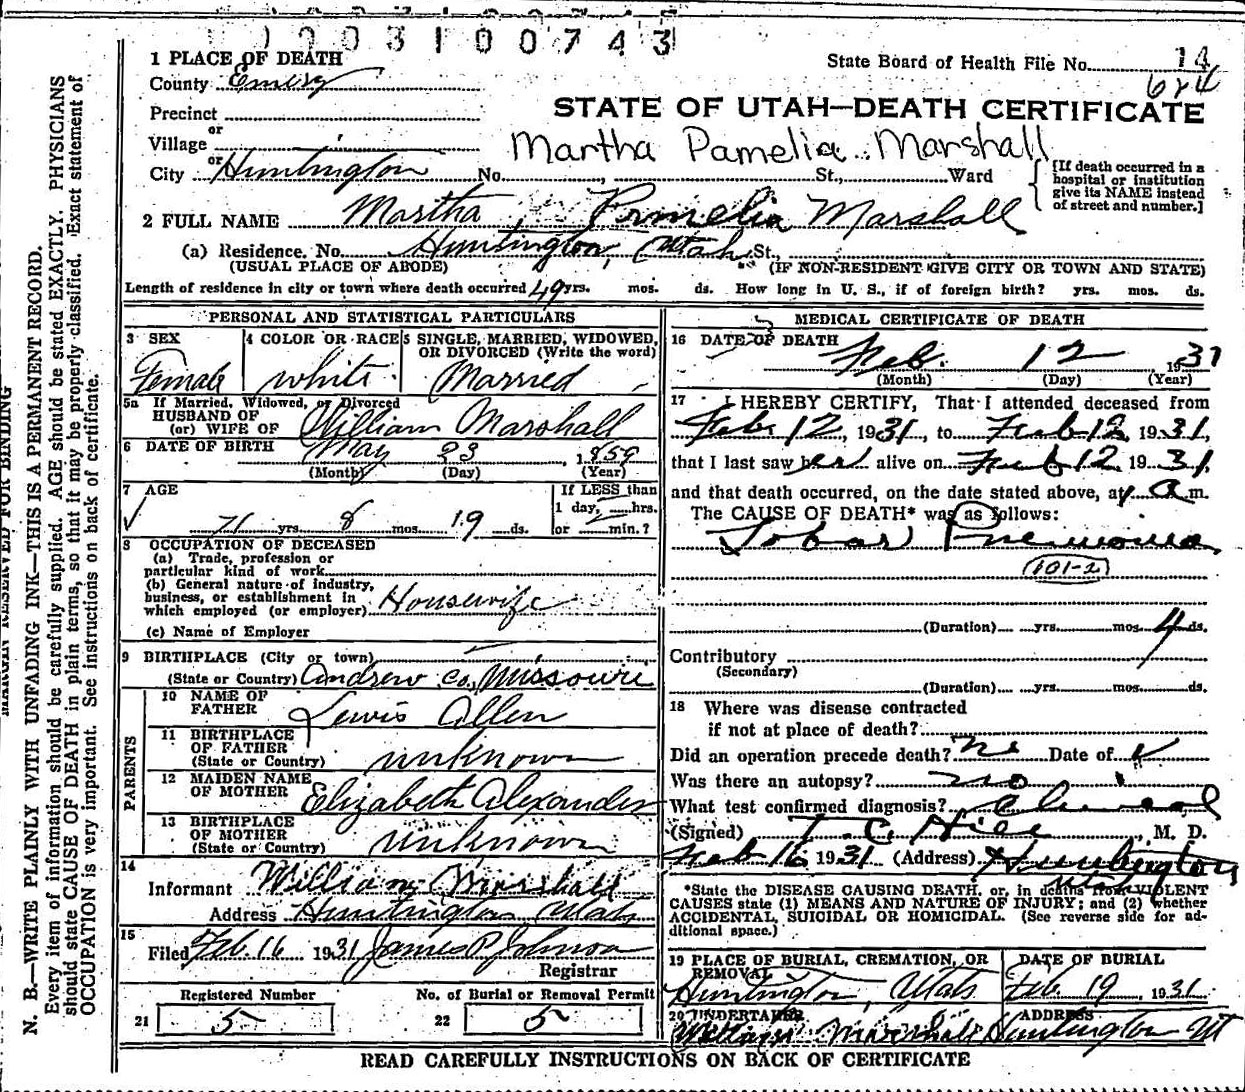 0 0 0 3 1 0 0 7 4 3
1 PLACE OF DEATH
County Emery
State Board of Health File No. 14
624
Precinct
STATE OF UTAH—DEATH CERTIFICATE
or
Village
Martha Pamelia Marshall
or
City Huntington No. , St., Ward
[If death occurred in a hospital or institution give its NAME instead of street and number.]
2 FULL NAME Martha Pamelia Marshall
(a) Residence. No. Huntington, Utah St.,
(USUAL PLACE OF ABODE) (IF NON-RESIDENT GIVE CITY OR TOWN AND STATE)
Length of residence in city or town where death occurred 49 yrs. mos. ds. How long in U. S., if of foreign birth? yrs. mos. ds.
PERSONAL AND STATISTICAL PARTICULARS
3 SEX
Female
4 COLOR OR RACE
white
5 SINGLE, MARRIED, WIDOWED, OR DIVORCED (Write the word)
Married
5a If Married, Widowed, or Divorced
HUSBAND OF
(or) WIFE OF William Marshall
6 DATE OF BIRTH May 23 1859
(Month) (Day) (Year)
7 AGE
71 yrs. 8 mos. 19 ds.
If LESS than
1 day, hrs.
or min.?
8 OCCUPATION OF DECEASED
(a) Trade, profession or
particular kind of work
(b) General nature of industry,
business, or establishment in
which employed (or employer) Housewife
(c) Name of Employer
9 BIRTHPLACE (City or town)
(State or Country) Andrew Co, Missouri
PARENTS
10 NAME OF
FATHER Lewis Allen
11 BIRTHPLACE
OF FATHER
(State or Country) unknown
12 MAIDEN NAME
OF MOTHER Elizabeth Alexander
13 BIRTHPLACE
OF MOTHER
(State or Country) unknown
14
Informant William Marshall
Address Huntington Utah
15
Filed Feb. 16 1931 James P Johnson
Registrar
Registered Number
21 5
No. of Burial or Removal Permit
22 5
MEDICAL CERTIFICATE OF DEATH
16 DATE OF DEATH
Feb. 12 1931
(Month) (Day) (Year)
17 I HEREBY CERTIFY, That I attended deceased from
Feb 12, 1931, to Feb 12 1931,
that I last saw her alive on Feb 12 1931,
and that death occurred, on the date stated above, at a m.
The CAUSE OF DEATH* was as follows:
Lobar Pneumonia
101-2
(Duration) yrs. mos. 4 ds.
Contributory
(Secondary)
(Duration) yrs. mos. ds.
18 Where was disease contracted
if not at place of death?
Did an operation precede death? no Date of
Was there an autopsy? no
What test confirmed diagnosis? Clinical
(Signed) T. C. Hill, M. D.
Feb 16 1931 (Address) Huntington
Utah
*State the DISEASE CAUSING DEATH, or, in deaths from VIOLENT
CAUSES state (1) MEANS AND NATURE OF INJURY; and (2) whether
ACCIDENTAL, SUICIDAL OR HOMICIDAL. (See reverse side for ad-
ditional space.)
19 PLACE OF BURIAL, CREMATION, OR
REMOVAL
Huntington, Utah
DATE OF BURIAL
Feb 19, 1931
20 UNDERTAKER
William Marshall
ADDRESS
Huntington Ut
READ CAREFULLY INSTRUCTIONS ON BACK OF CERTIFICATE
MARGIN RESERVED FOR BINDING
N. B.—WRITE PLAINLY WITH UNFADING INK—THIS IS A PERMANENT RECORD.
Every item of information should be carefully supplied. AGE should be stated EXACTLY. PHYSICIANS
should state CAUSE OF DEATH in plain terms, so that it may be properly classified. Exact statement of
OCCUPATION is very important. See instructions on back of certificate.